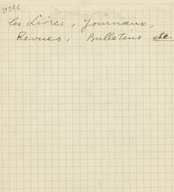 les Livres, Journaux,
Revues, Bulletins etc